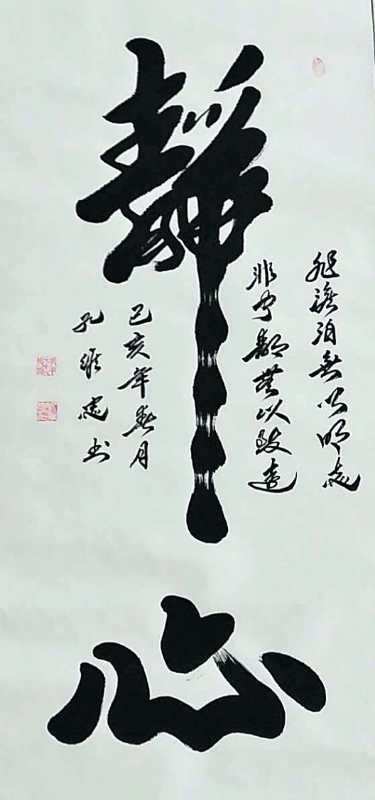 靜心
非澹泊无以明志
非宁靜無以致遠
己亥年春月
孔維志书